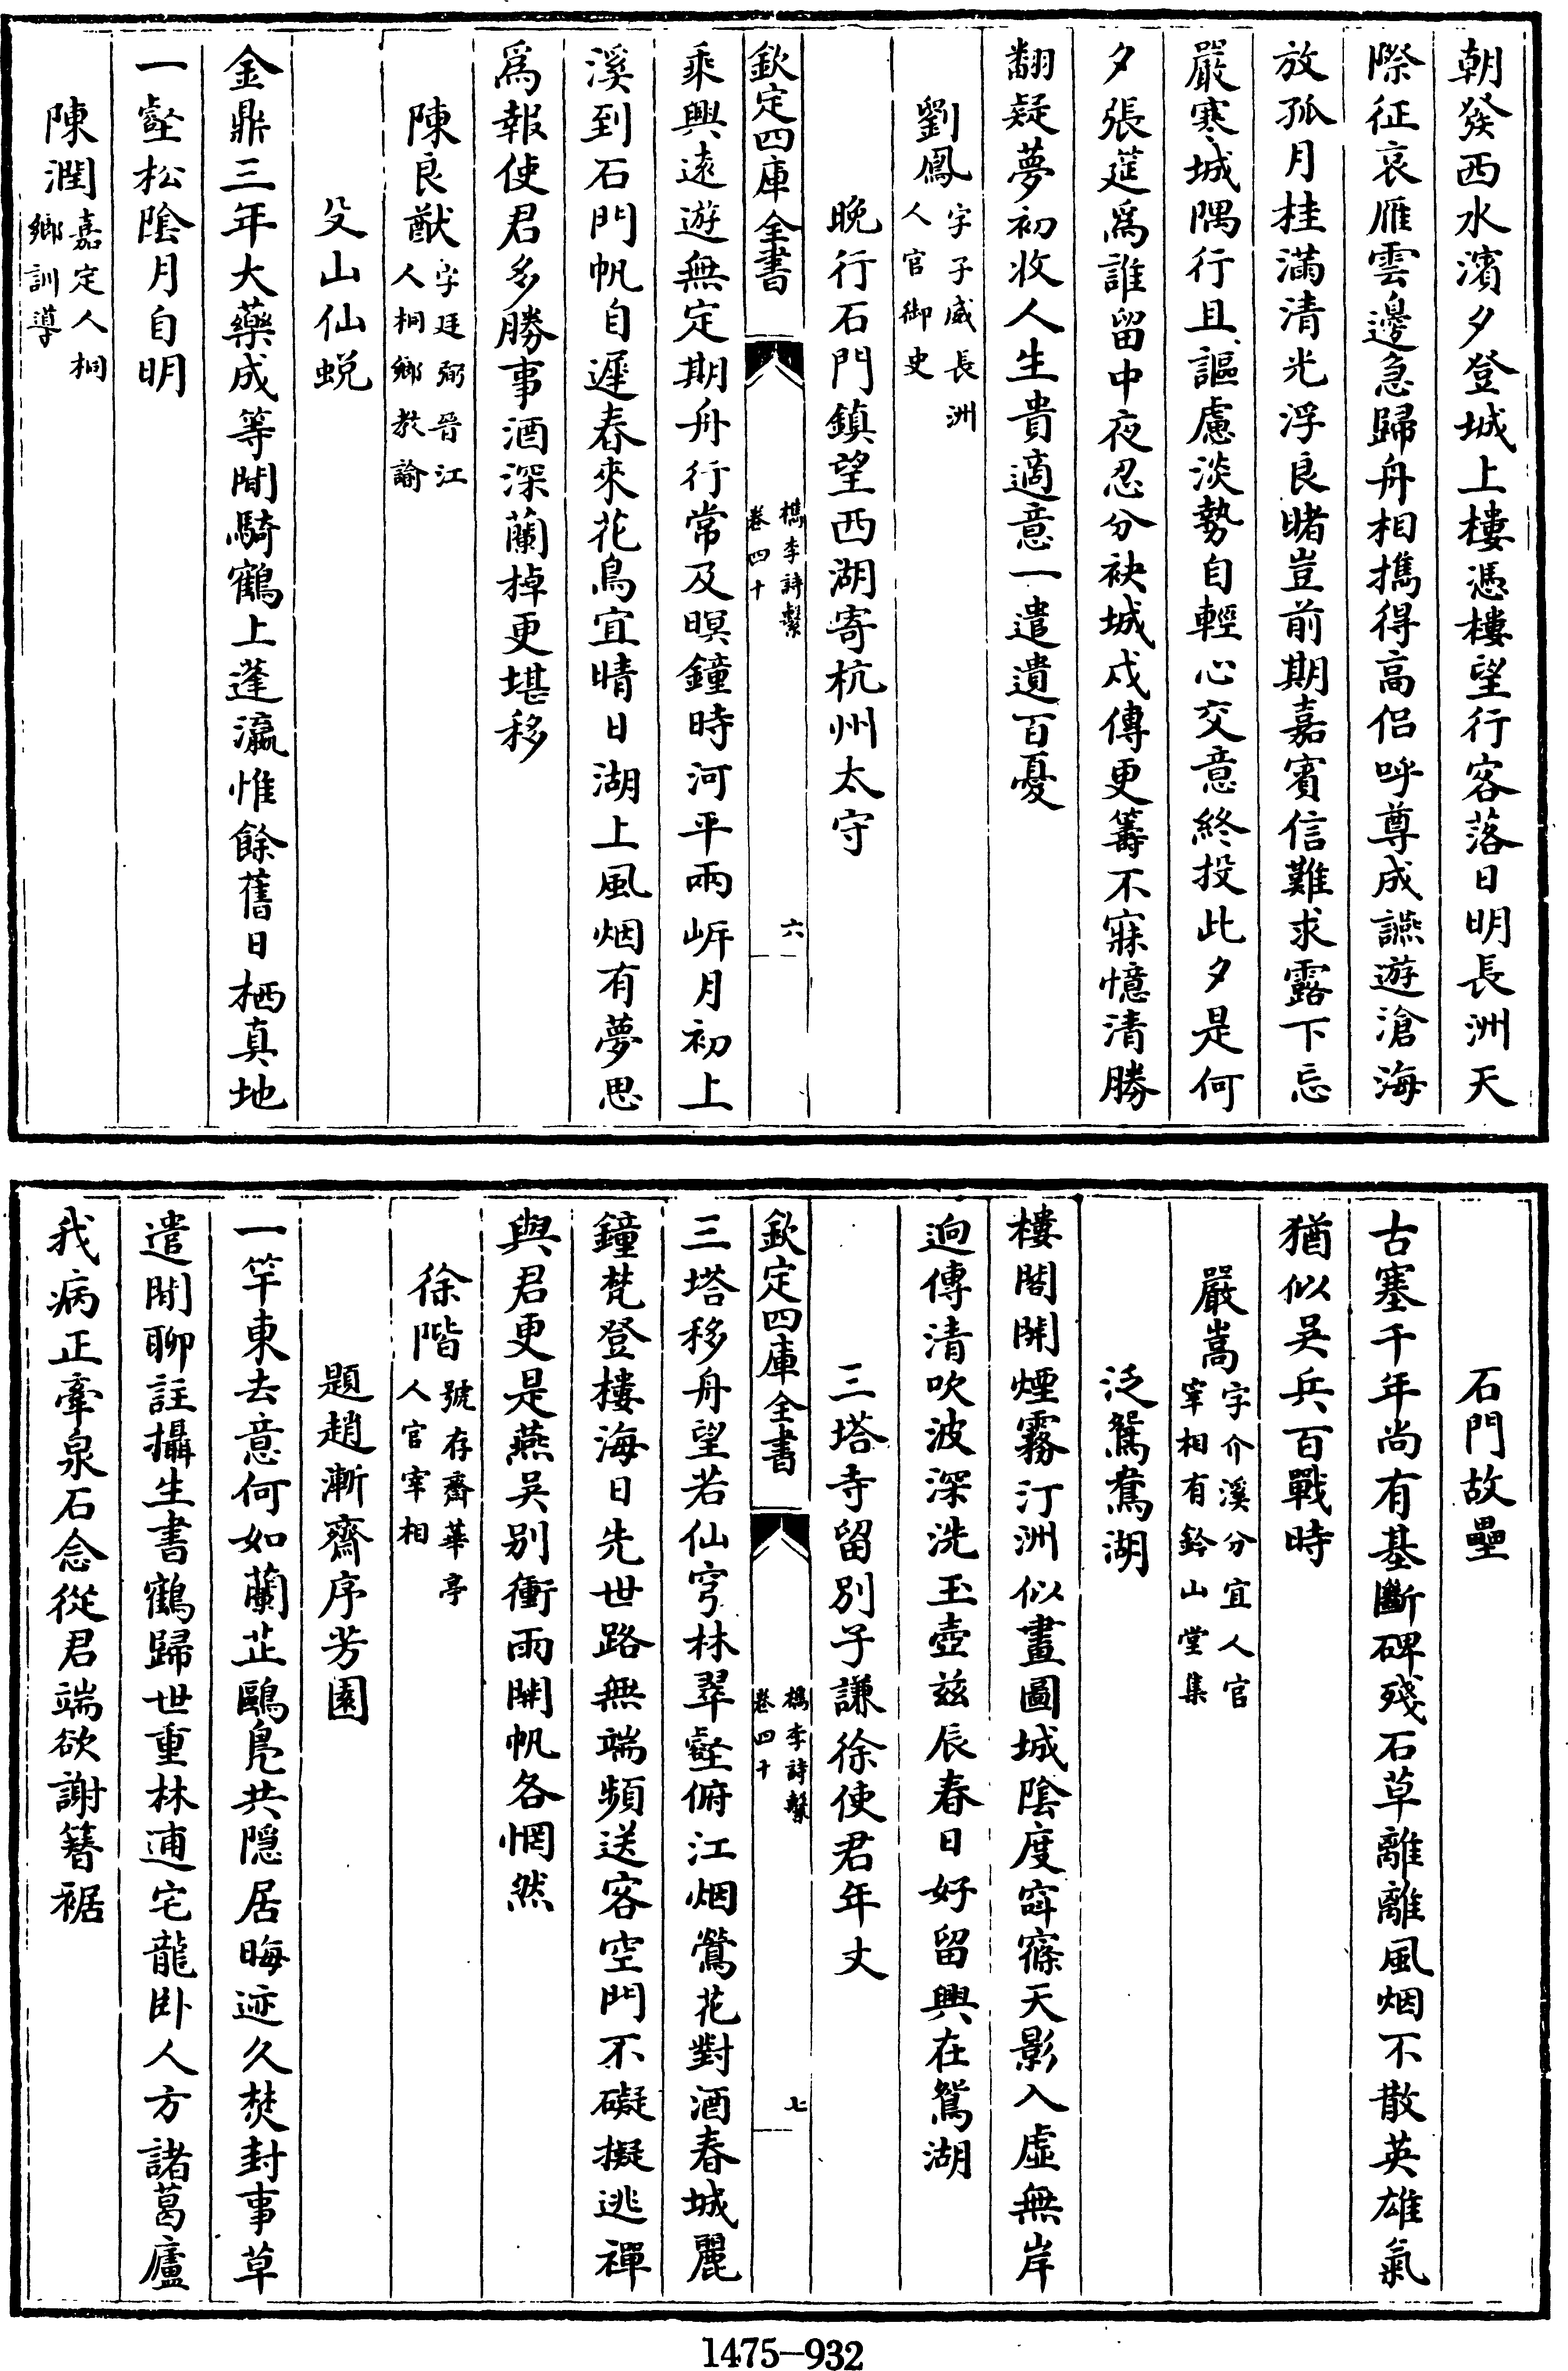 朝發西水濱夕登城上樓憑樓望行客落日明長洲天
際征哀雁雲邊急歸舟相攜得高侣呼尊成讌遊滄海
放孤月桂滿清光浮良睹豈前期嘉賓信難求露下忘
嚴寒城隅行且謳慮淡勢自輕心交意終投此夕是何
夕張筵為誰留中夜忍分袂城戍傳更籌不寐憶清勝
翻疑夢初收人生貴適意一遣遺百憂
劉鳳字子威長洲人官御史
晚行石門鎮望西湖寄杭州太守
欽定四庫全書
檇李詩繫
卷四十
六
乘興遠遊無定期舟行常及暝鐘時河平兩岍月初上
溪到石門帆自遲春來花鳥宜晴日湖上風烟有夢思
為報使君多勝事酒深蘭棹更堪移
陳良猷字廷弼晉江人桐鄉教諭
殳山仙蜕
金鼎三年大藥成等閒騎鶴上蓬瀛惟餘舊日栖真地
一壑松陰月自明
陳潤嘉定人桐鄉訓導
石門故壘
古塞千年尚有基斷碑殘石草離離風烟不散英雄氣
猶似吳兵百戰時
嚴嵩字介溪分宜人官宰相有鈐山堂集
泛鴛鴦湖
樓閣開煙霧汀洲似畫圖城陰度窅窱天影入虛無岸
迥傳清吹波深洗玉壺兹辰春日好留興在鴛湖
三塔寺留別子謙徐使君年丈
欽定四庫全書
檇李詩繫
卷四十
七
三塔移舟望若仙穹林翠壑俯江烟鶯花對酒春城麗
鐘梵登樓海日先世路無端頻送客空門不礙擬逃禪
與君更是燕吳别衝雨開帆各惘然
徐階號存齋華亭人官宰相
題趙漸齋序芳園
一竿東去意何如蘭芷鷗鳧共隠居晦迹久焚封事草
遣閒聊註攝生書鶴歸世重林逋宅龍卧人方諸葛廬
我病正牽泉石念從君端欲謝簪裾
1475-932